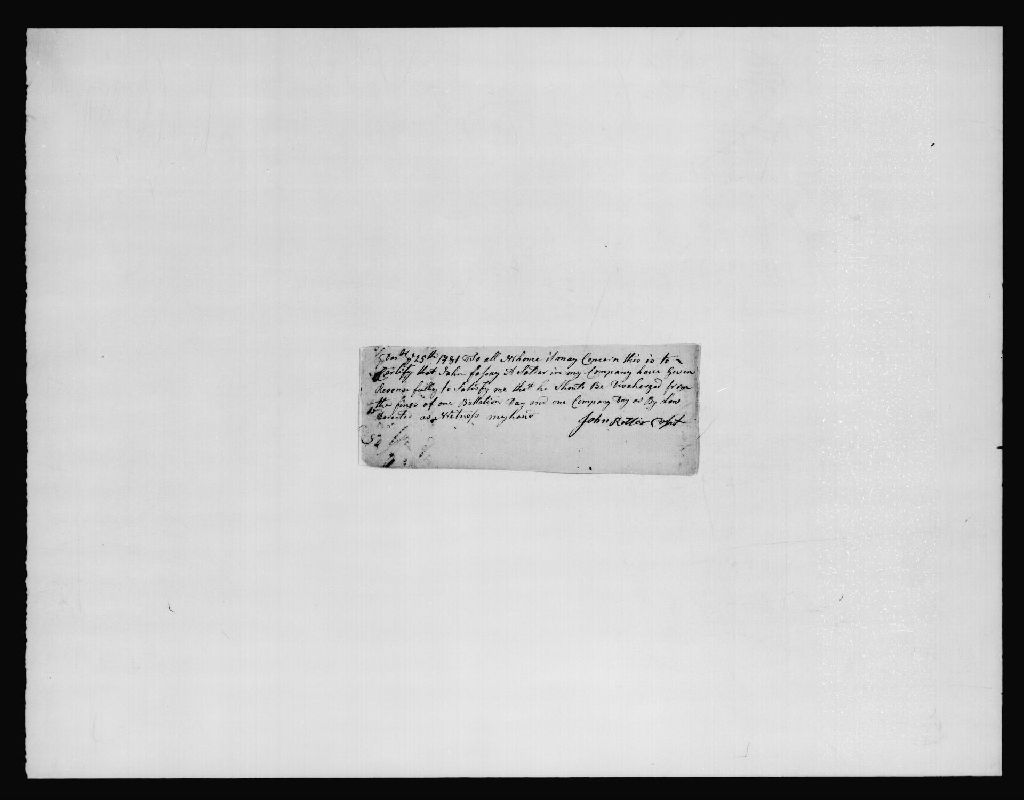 25th 1781 To all Whome it may Concern this is to
Certify that John in my Company have Given
Reasons fully to Satisfy me that he Should Be Discharged from
the fines of one Battalion Day and one Company Day as By Law
Directed as Witness my hand John Rotter Capt